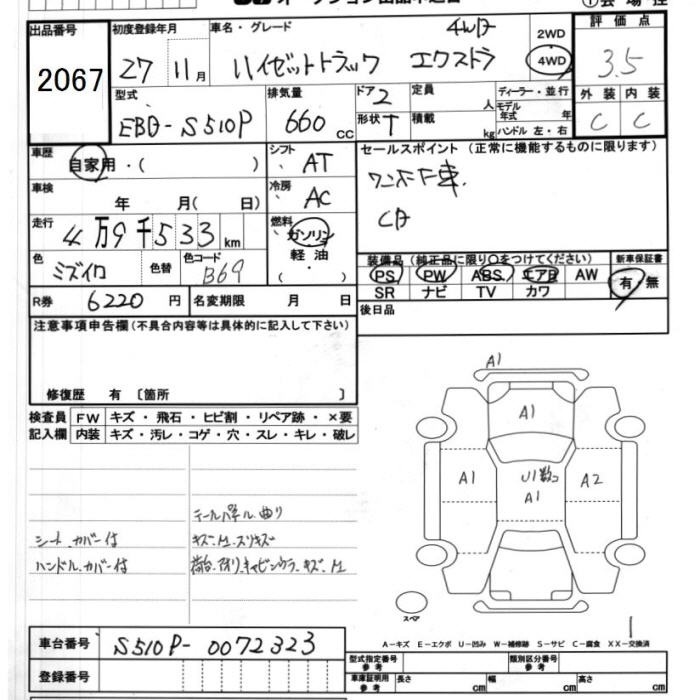 出品番号 2067
初度登録年月 27 11月
車名・グレード 4WD
ハイゼットトラック エクストラ
2WD
4WD
評価点
3.5
外装 内装
C C
型式
EBD-S510P
排気量
660 CC
ドア 2
形状 T
定員 人
積載 kg
ディーラー・並行
モデル年式 年
ハンドル 左・右
車歴
自家用・( )
シフト AT
セールスポイント (正常に機能するものに限ります)
ワンオーナー車.
車検
年 月( 日)
冷房 AC
走行
4万9千533 km
燃料
ガソリン
軽油
( ・ )
色
ミズイロ
色替
色コード
B69
装備品 (純正品に限り○をつけてください)
PS PW ABS エアB AW
SR ナビ TV カワ
新車保証書
有・無
R券 6220 円
名変期限 月 日
後日品
注意事項申告欄 (不具合内容等は具体的に記入して下さい)
修復歴 有 〔箇所 〕
検査員記入欄
FW キズ・飛石・ヒビ割・リペア跡・×要
内装 キズ・汚レ・コゲ・穴・スレ・キレ・破レ
シート.カバー付
ハンドル.カバー付
テールパネル.曲り
キズ.
A1
A1
A1
A1
A2
スペア
A−キズ E−エクボ U−凹み W−補修跡 S−サビ C−腐食 XX−交換済
車台番号 S510P-0072323
登録番号
型式指定番号 参考
類別区分番号 参考
車庫証明用 参考
長さ cm
幅 cm
高さ cm